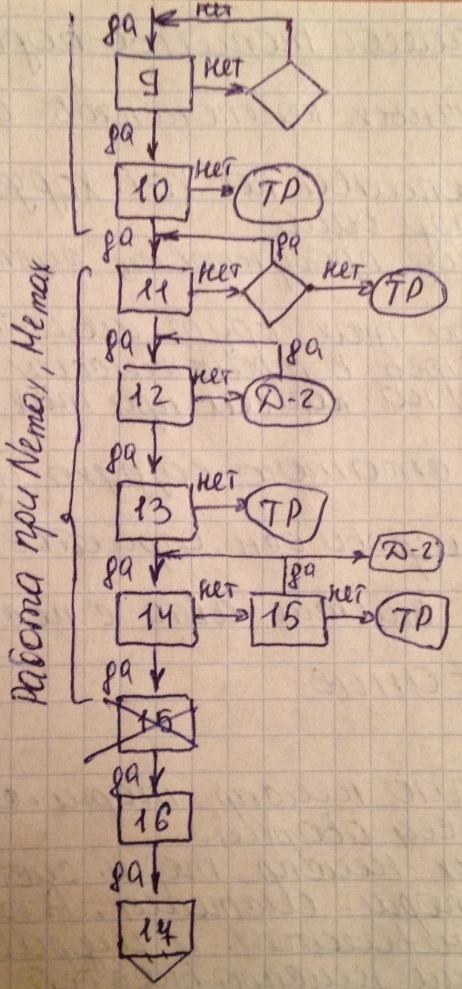 нет
да
9 нет
да
нет
10 ТР
да да
нет нет
11 ТР
да да
нет
12 Д-2
да
нет
13 ТР
Д-2
да да
нет нет
14 15 ТР
да
15
да
16
да
17
Работа при Nemax, Memax